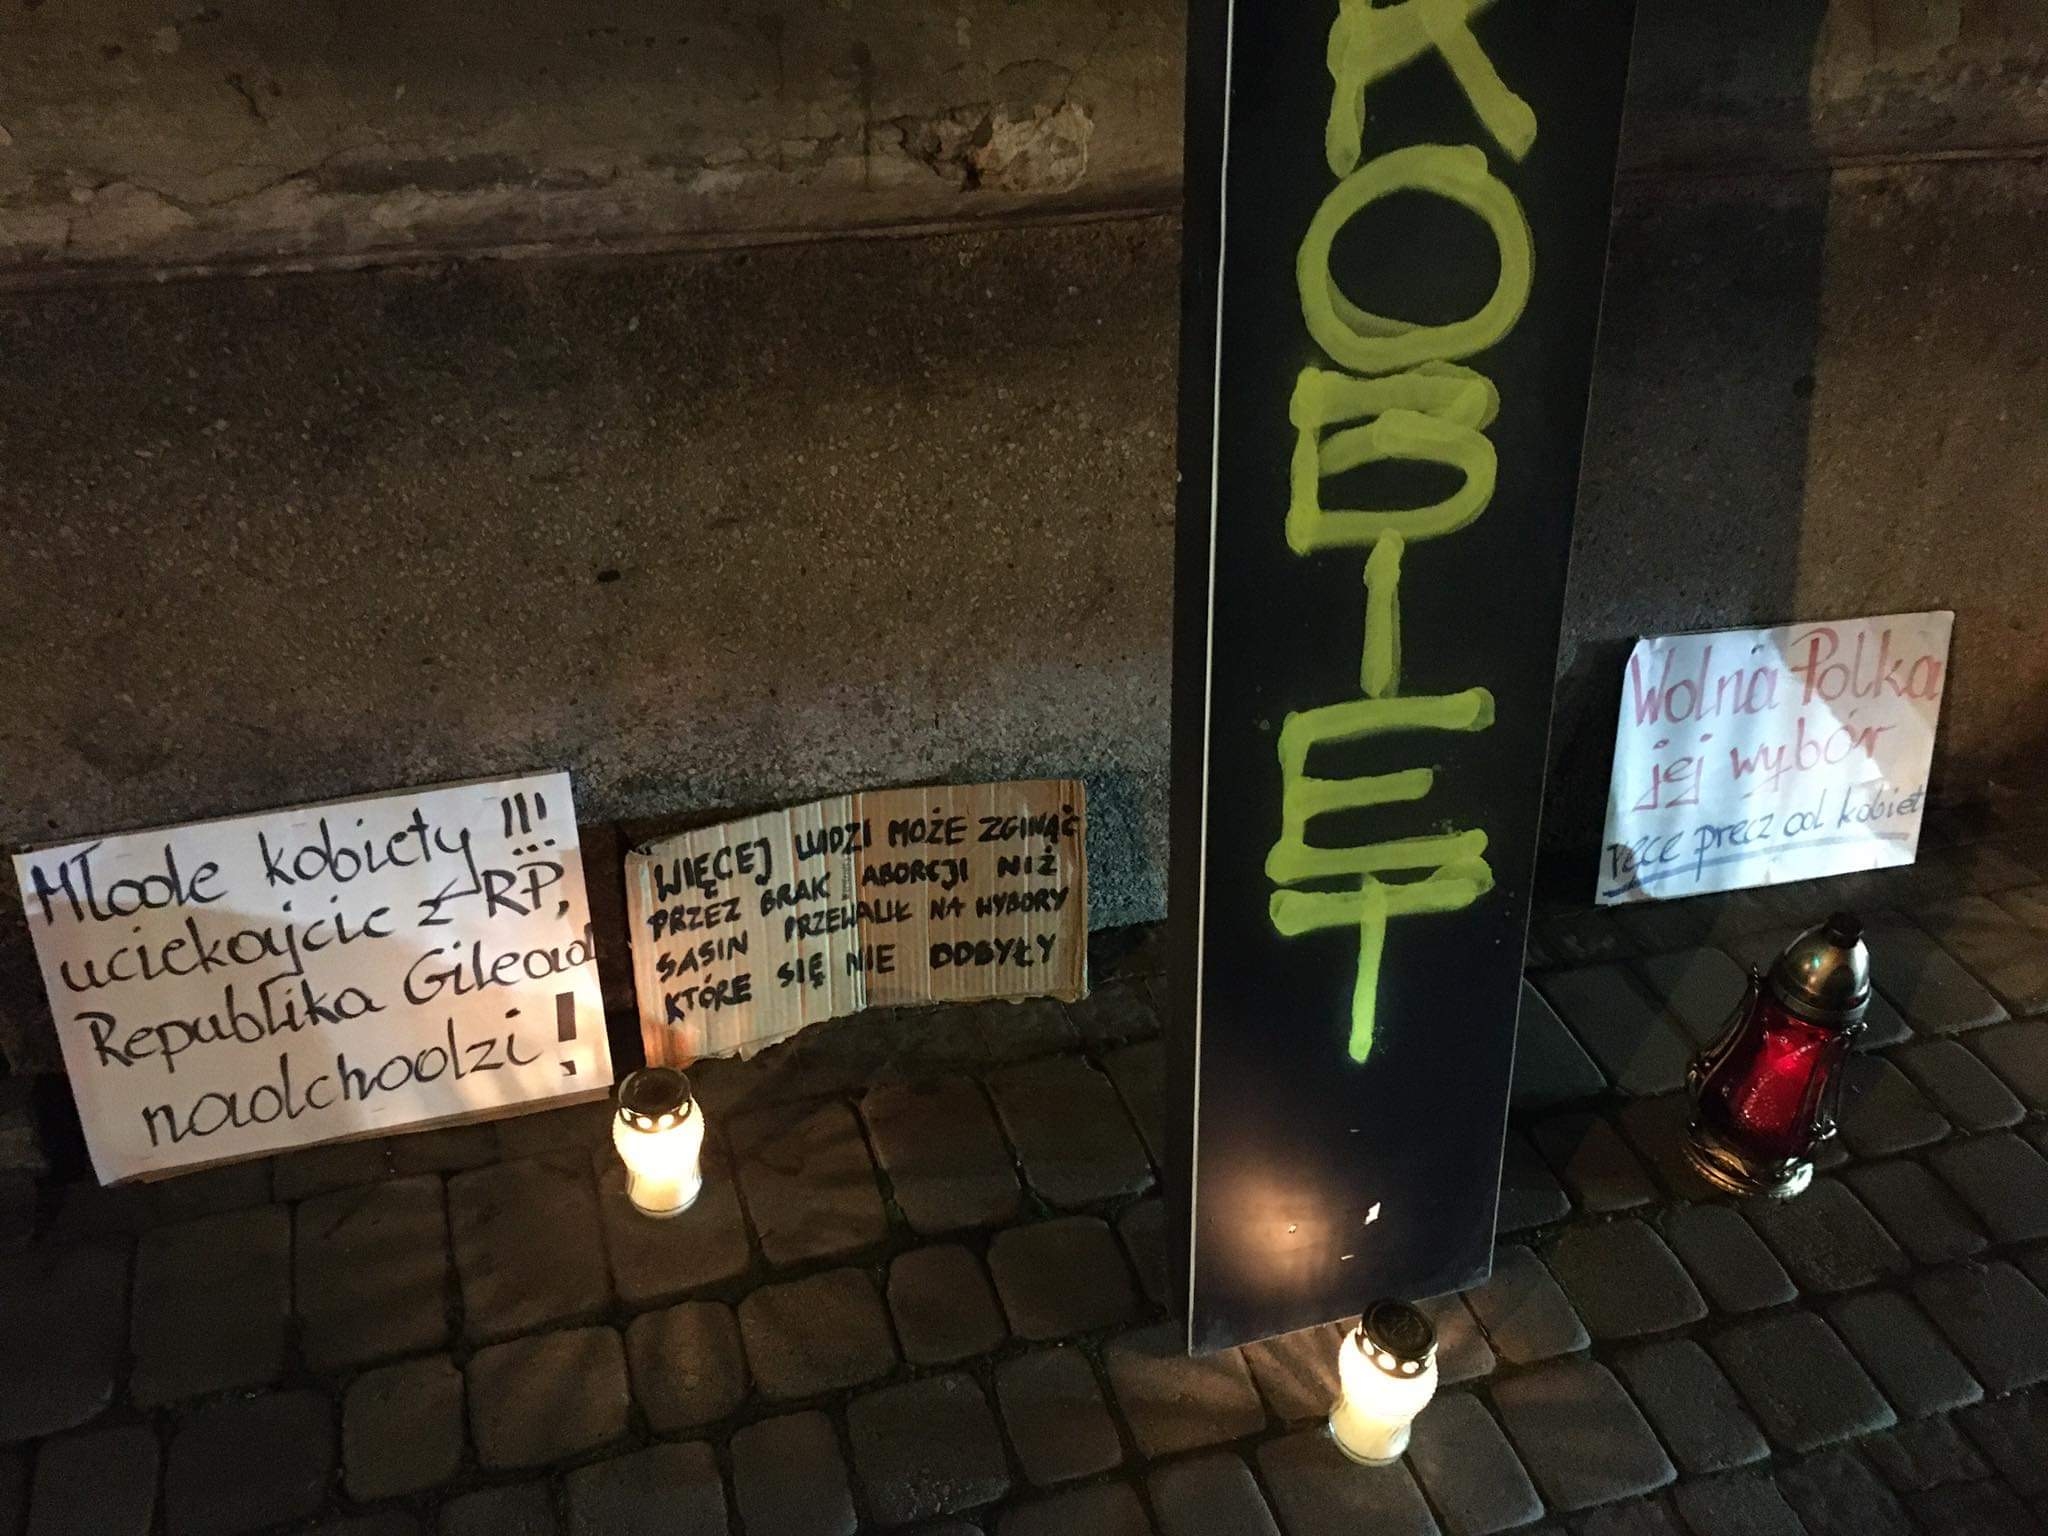 Młode kobiety !!!
uciekajcie z RP,
Republika Gilead
nadchodzi !
WIĘCEJ LUDZI MOŻE ZGINĄĆ
PRZEZ BRAK ABORCJI NIŻ
SASIN PRZEWALIŁ NA WYBORY
KTÓRE SIĘ NIE ODBYŁY
KOBIET
Wolna Polka
jej wybór
ręce precz od kobiet